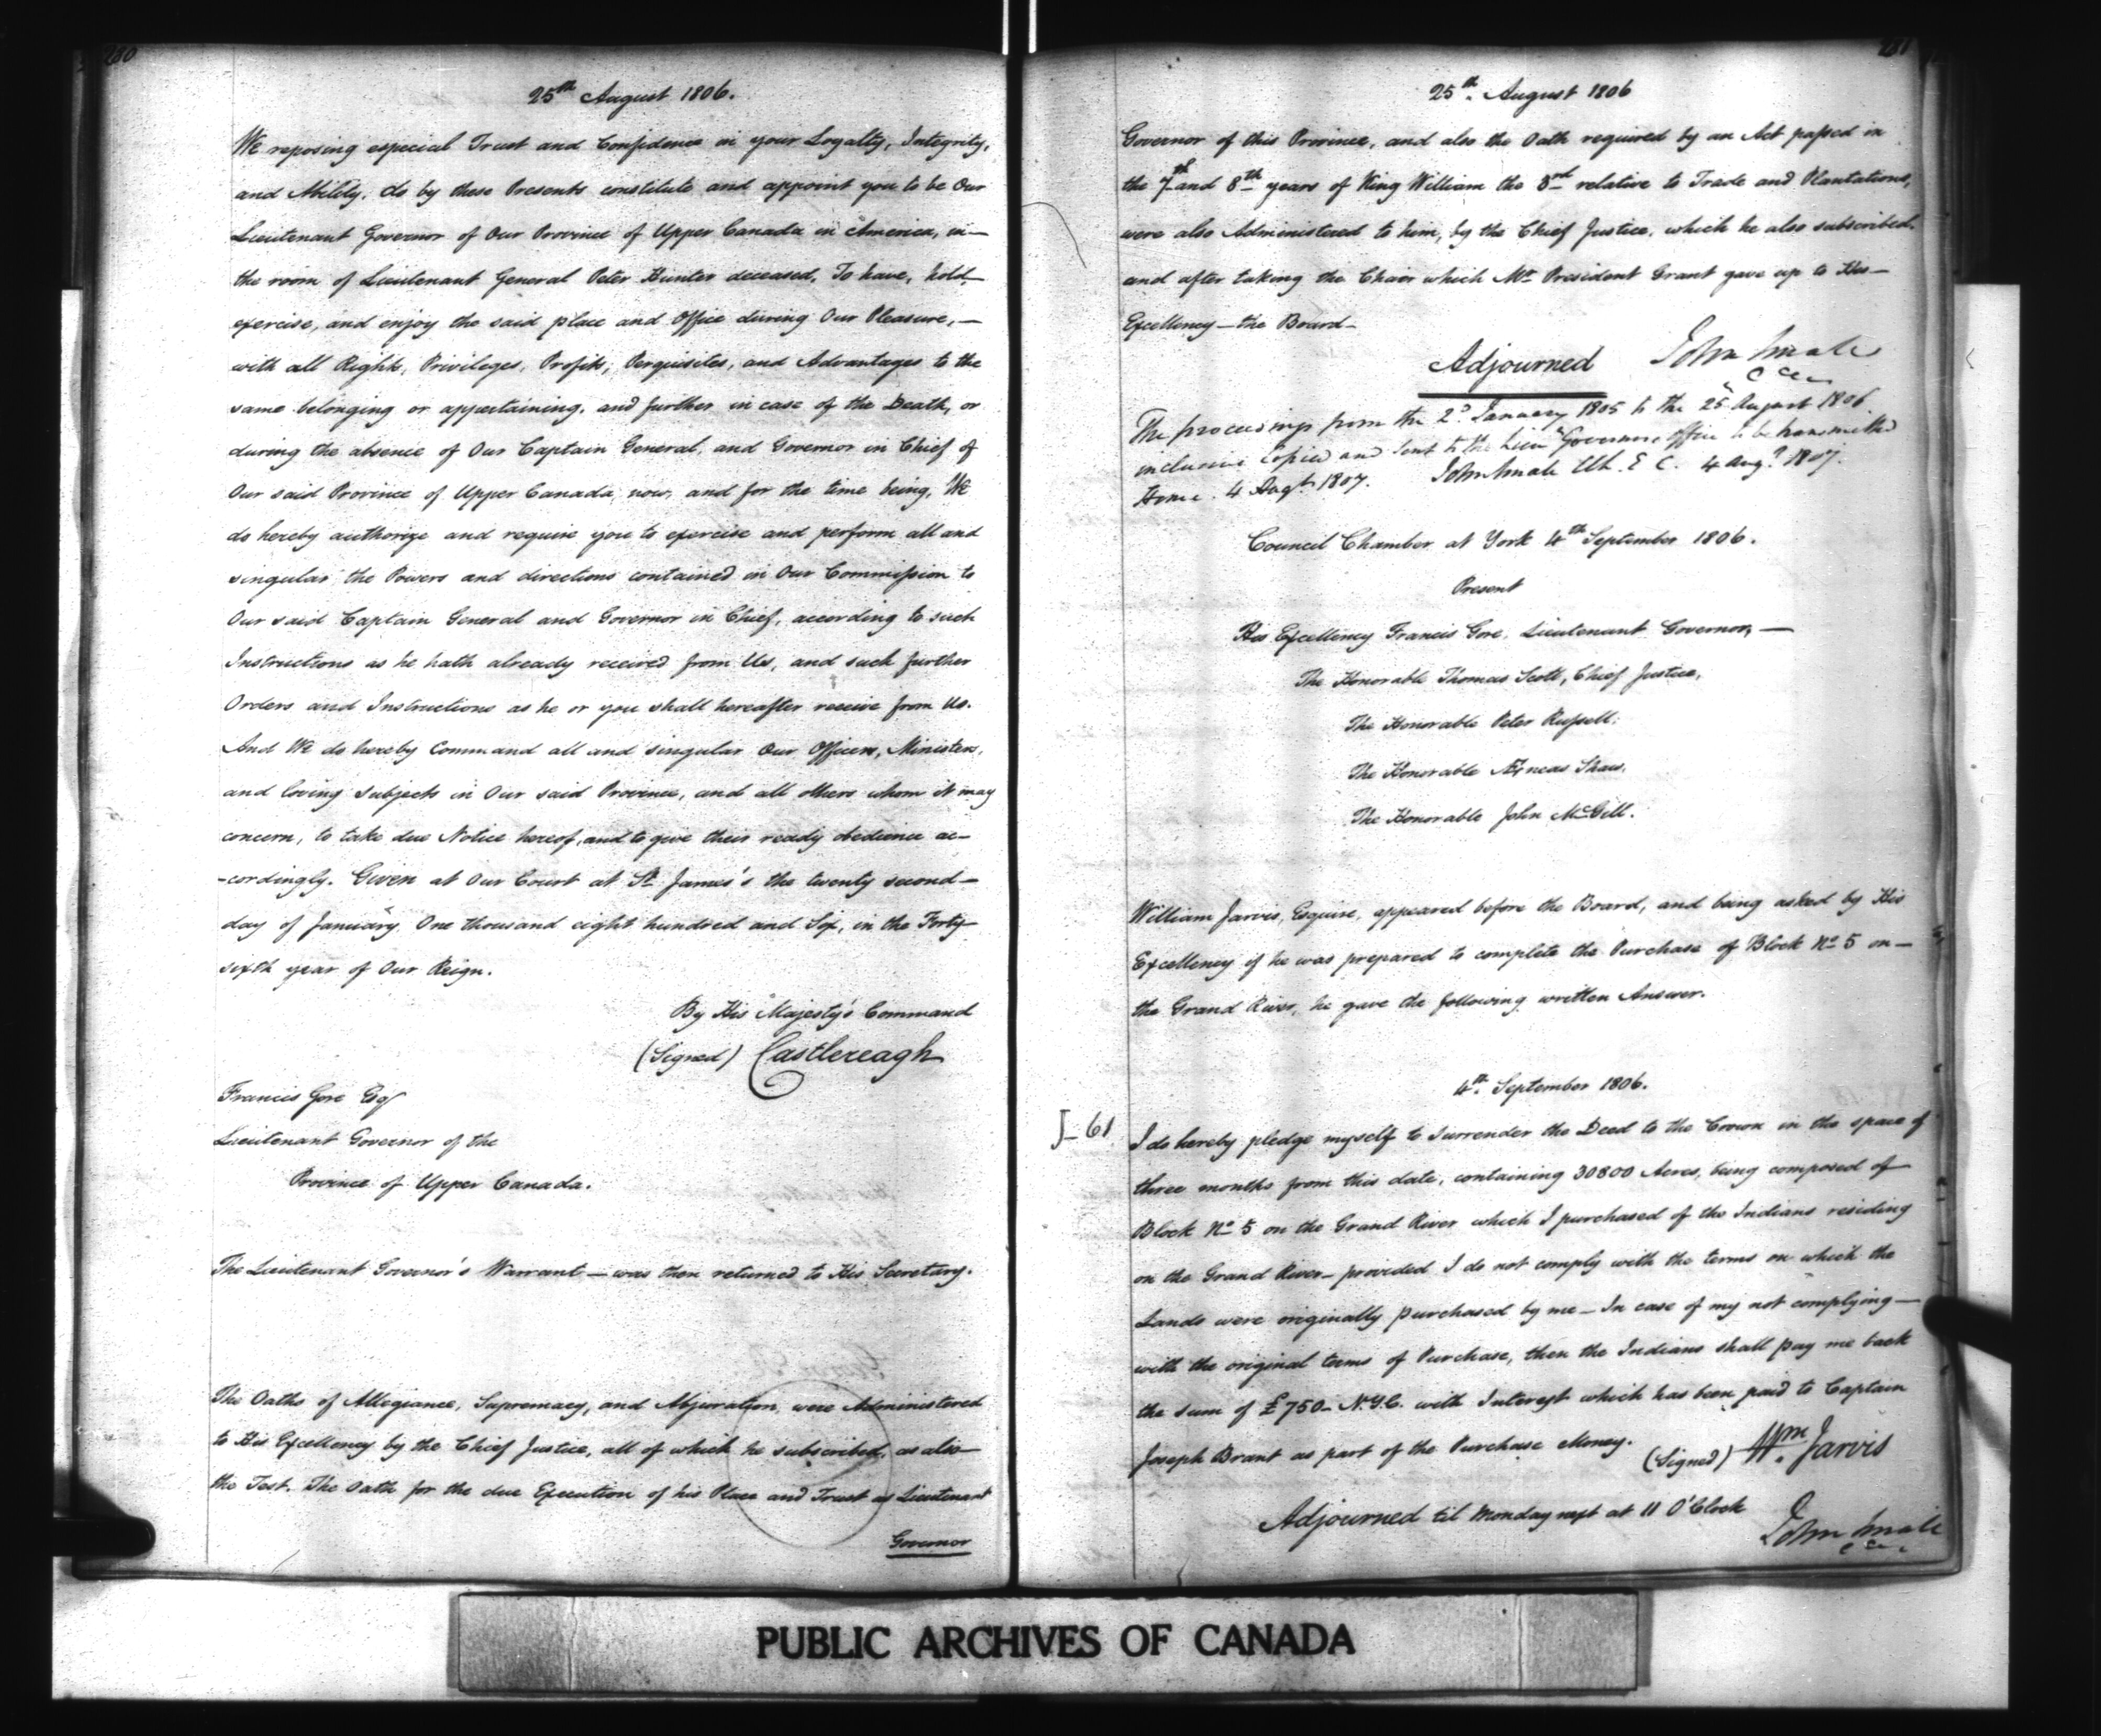 25th August 1806.
We reposing especial Trust and Confidence in your Loyalty, Integrity,
and Ability, do by these Presents constitute and appoint you to be Our
Lieutenant Governor of Our Province of Upper Canada in America, in—
the room of Lieutenant General Peter Hunter deceased, To have, hold,—
exercise, and enjoy the said place and Office during Our Pleasure,—
with all Rights, Privileges, Profits, Perquisites, and Advantages to the
same belonging or appertaining, and further in case of the Death, or
during the absence of Our Captain General, and Governor in Chief of
Our said Province of Upper Canada, now, and for the time being, We
do hereby authorize and require you to exercise and perform all and
singular the Powers and directions contained in Our Commission to
Our said Captain General and Governor in Chief, according to such
Instructions as he hath already received from Us, and such further
Orders and Instructions as he or you shall hereafter receive from Us.
And We do hereby Command all and singular Our Officers, Ministers,
and loving Subjects in Our said Province, and all others whom it may
concern, to take due Notice hereof, and to give their ready obedience ac-
-cordingly. Given at Our Court at St. James's the twenty second—
day of January, One thousand eight hundred and Six, in the Forty
sixth year of Our Reign.
By His Majesty's Command
(Signed) Castlereagh
Francis Gore Esqr
Lieutenant Governor of the
Province of Upper Canada.
The Lieutenant Governor's Warrant — was then returned to His Secretary.
The Oaths of Allegiance, Supremacy, and Abjuration, were Administered
to His Excellency by the Chief Justice, all of which he subscribed, as also—
the Test. The Oath for the due Execution of his Place and Trust as Lieutenant
Governor
25th. August 1806
Governor of this Province, and also the Oath required by an Act passed in
the 7th and 8th years of King William the 3rd relative to Trade and Plantations,
were also Administered to him, by the Chief Justice, which he also subscribed,
and after taking the Chair which Mr. President Grant gave up to His—
Excellency — the Board—
Adjourned John Small
The proceedings from the 2d. January 1805 to the 25 August 1806
inclusive Copied and sent to the Lieut Governors office to be transmitted
Home. 4 Augt. 1807. John Small Clk. E C. 4 Augt. 1807.
Council Chamber at York 4th September 1806.
Present
His Excellency Francis Gore, Lieutenant Governor,—
The Honorable Thomas Scott, Chief Justice,
The Honorable Peter Russell:
The Honorable Æneas Shaw.
The Honorable John McGill.
William Jarvis, Esquire, appeared before the Board, and being asked by His
Excellency if he was prepared to complete the Purchase of Block No. 5 on—
the Grand River, he gave the following written Answer.
4th. September 1806.
J-61.
I do hereby pledge myself to surrender the Deed to the Crown in the space of
three months from this date, containing 30800 Acres, being composed of
Block No. 5 on the Grand River which I purchased of the Indians residing
on the Grand River — provided I do not comply with the terms on which the
Lands were originally purchased by me — In case of my not complying—
with the original terms of Purchase, then the Indians shall pay me back
the sum of £750— N.Y.C. with Interest which has been paid to Captain
Joseph Brant as part of the Purchase Money.
(Signed) Wm. Jarvis
Adjourned til Monday next at 11 O'Clock
John Small
PUBLIC ARCHIVES OF CANADA